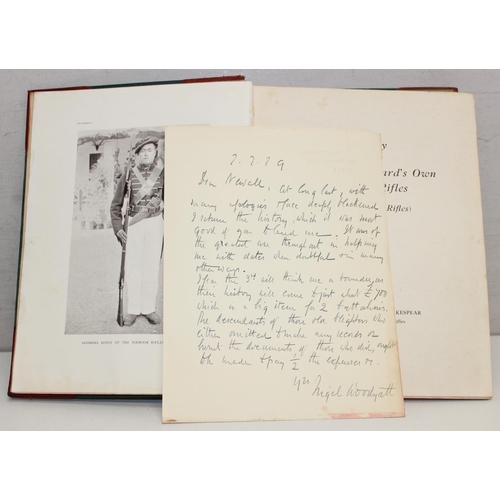 SIRMOOR RIFLES
y
ard's Own
Rifles
Rifles)
KESPEAR
7.7.29
Dear Newell, At long last, with
many apologies & face deeply blackened
I return the history, which it was most
good of you to lend me. It was of
the greatest use throughout in helping
me with dates when doubtful & in many
other ways.
I fear the 3rd will think me a bounder, as
their history will come to just what £700
which is a big item for 2 battalions.
The descendants of those old blighters who
either omitted to make any records or
burnt the documents, of those who did, ought
to be made to pay ½ the expenses &c.
Yrs
Nigel Woodyatt